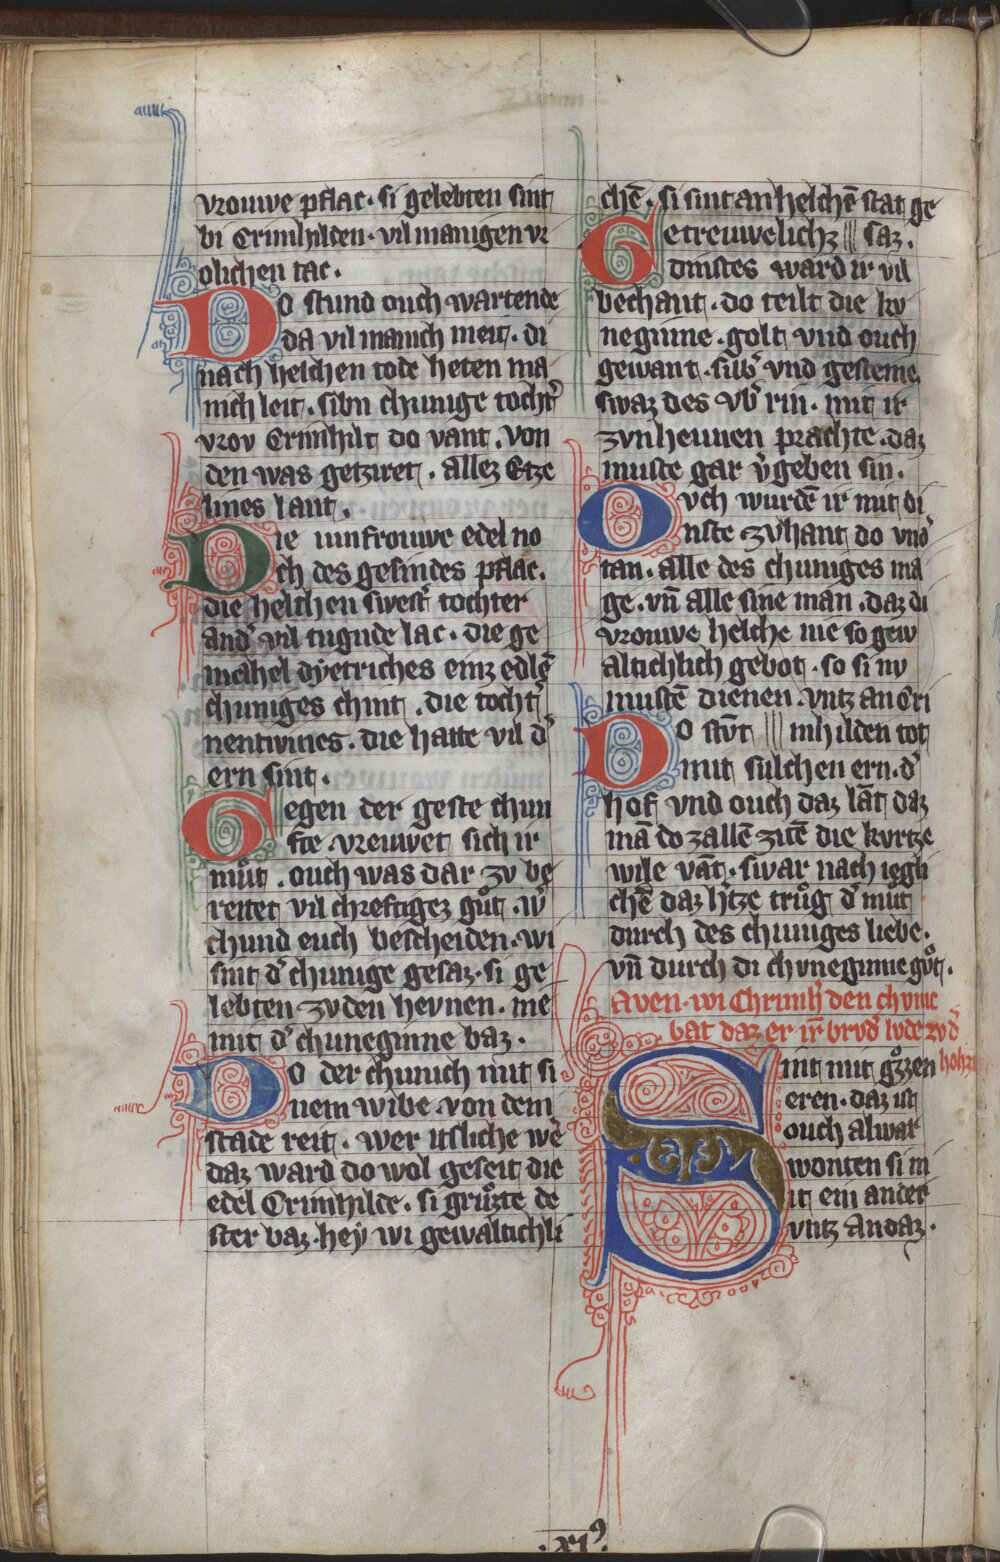 vrouwe pflac · si gelebten sint
bi Crimhilden · vil manigen vr
olichen tac ·
Do stund ouch wartende
da vil manich meit · di
nach helchen tode heten ma
nich leit · sibn chunige tocht᾽
vrov Crimhilt do vant · von
den was getziret · allez Etze
lines lant ·
Die iunfrouwe edel no
ch des gesindes pflac ·
die helchen swest᾽ tochter
and᾽ vil tugnde lac · die ge
mahel dyetriches einz edlē
chuniges chint · die tocht᾽
nentwines · die hatte vil d᾽
ern sint ·
Gegen der geste chun
fte · vreuwet sich ir
muͦt · ouch was dar zv be
reitet vil chreftigez guͦt · w᾽
chund euch bescheiden · wi
sint d᾽ chunige gesaz · si ge
lebten zv den hevnen · nie
mit d᾽ chuneginne baz ·
Do der chunich mit si
nem wibe · von dem
stade reit · wer itsliche we᾽
daz ward do wol geseit die
edel Crimhilde · si gruͦzte de
ster baz · hey wi gewaltichli
chē · si sint an helchē stat ge
Getreuwelichz ||| saz ·
dinstes ward ir vil
bechant · do teilt die kv
neginne · golt vnd ouch
gewant · silb᾽ vnd gesteine
swaz des vb᾽ rin · mit ir
zvnheunen prachte · daz
muste gar v᾽geben sin ·
Ovch wurdē ir mit di
nste zvhant do vnd᾽
tan · alle des chuniges ma
ge · vn̄ alle sine man · daz di
vrouwe helche nie so gew
altichlich gebot · so si nv
mustē dienen · vntz an Cri
Do stv̄t ||| mhilden tot
mit sulchen ern · d᾽
hof vnd ouch daz lāt daz
mā do zallē zitē die kvrtze
wile vāt · swar nach iegli
chē daz h᾽tze truͦg d᾽ mut
durch des chuniges liebe ·
vn̄ durch di chvneginne guͦt ·
Aven · wi Chrimh᾽ den chvnic
bat daz er ir᾽ brvd᾽ lvde zvd᾽
hohzi
Sint mit gͦzzen
eren · daz ist
ouch alwar
wonten si m
it ein ander
vntz an daz ·
· xi᾽ ·